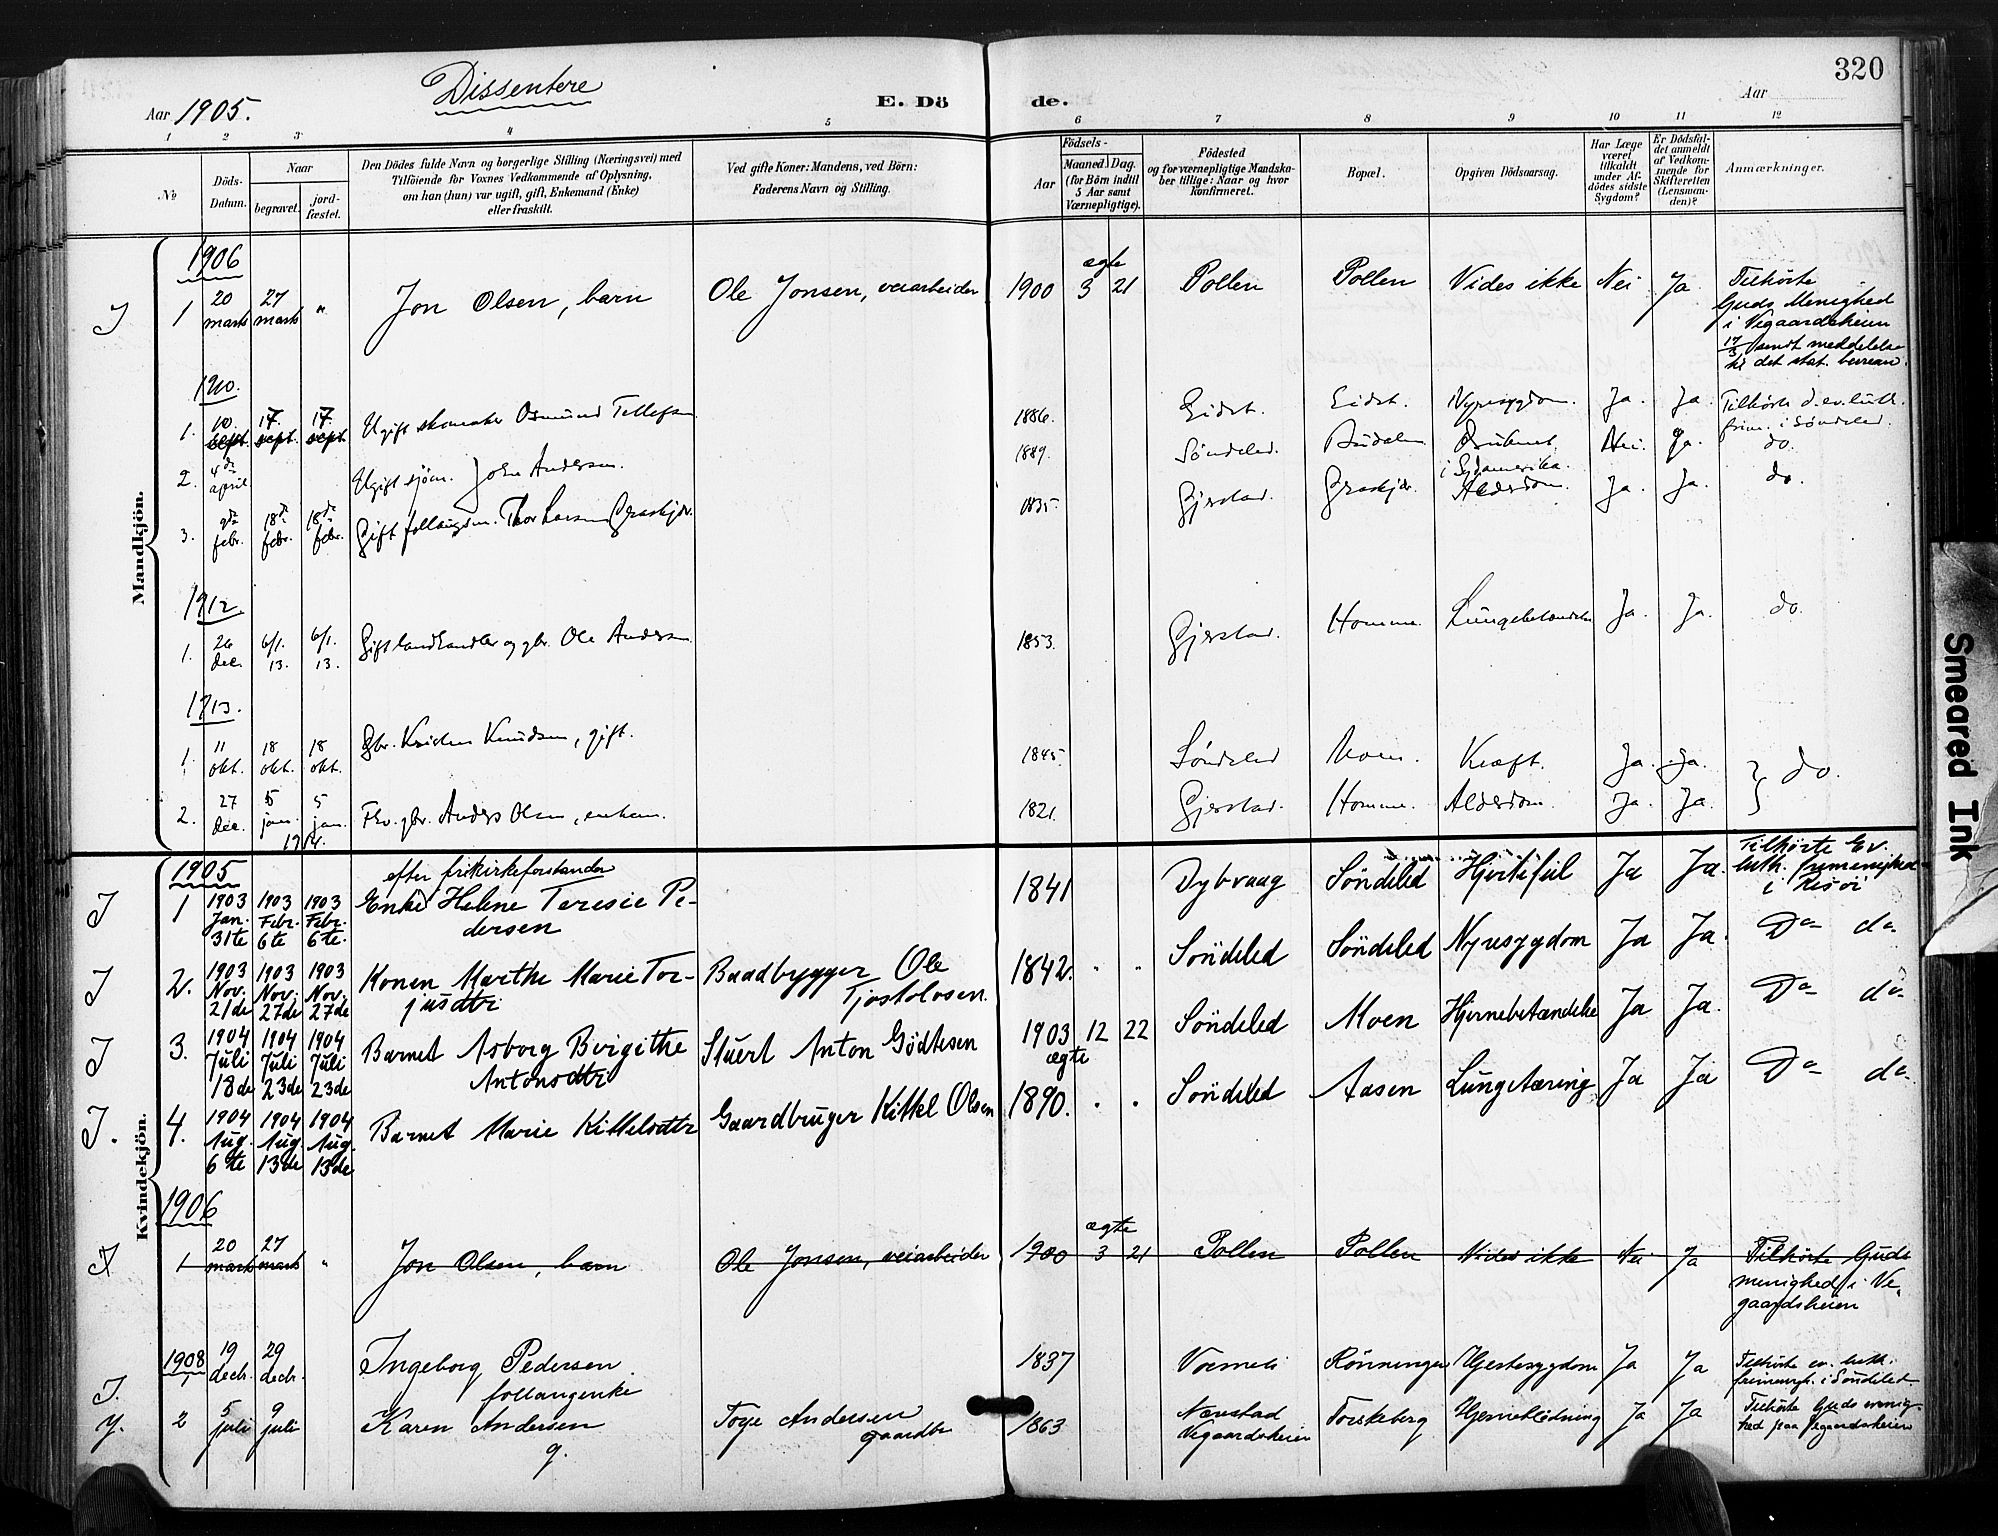 320
Dissentere
Aar 1905. E. Dö de. Aar
1 2 3 4 5 6 7 8 9 10 11 12
No
Döds-Datum.
Naar
begravet.
jord-fæstet.
Den Dödes fulde Navn og borgerlige Stilling (Næringsvei) med
Tilföiende for Voxnes Vedkommende af Oplysning,
om han (hun) var ugift, gift, Enkemand (Enke)
eller fraskilt.
Ved gifte Koner: Mandens, ved Börn:
Faderens Navn og Stilling.
Födsels-
Aar
Maaned. Dag.
(for Börn indtil
5 Aar samt
Værnepligtige).
Födested
og for værnepligtige Mandska-
ber tillige: Naar og hvor
konfirmeret.
Bopæl.
Opgiven Dödsaarsag.
Har Læge
været
tilkaldt
under Af-
dödes sidste
Sygdom?
Er Dödsfal-
det anmeldt
af Vedkom-
mende for
Skifteretten
(Lensman-
den)?
Anmærkninger.
Mandkjön.
1906
J 1 20 marts 27 marts " Jon Olsen, barn Ole Jonsen, veiarbeider 1900 ægte 3 21 Pollen Pollen Vides ikke Nei Ja Tilhörte
Guds Menighed
i Vegaardsheien
17/3 sendt meddelelse
til det stat. bureau.
1910.
1. 10. sept. 17. sept. 17. sept. Ugift skomaker Osmund Tellefsen 1886. Eidet. Eidet. Nyresygdom. Ja. Ja. Tilhörte d. ev. luth.
frim. i Söndeled.
2. 4de april Ugift sjöm. John Andersen. 1889. Söndeled. Druknet i Sydamerika. Nei. Ja. do.
3. 9de febr. 18de febr. 18de febr. Gift follaugsm. Thor Larsen 1835. Gjerstad. Alderdom. Ja. Ja. do.
1912
1. 26 dec. 6/1. 13. 6/1. 13. Gift landhandler og gbr. Ole Andersen 1853. Gjerstad. Homme. Lungebetændelse Ja. Ja. do.
1913.
1. 11 okt. 18 okt. 18 okt. Gbr. Knudsen, gift. 1845. Söndeled Moen. Kræft. Ja. Ja. do.
2. 27 dec. 5 jan. 5 jan. 1914. Fhv. gbr. Anders Olsen, enkem. 1821. Gjerstad. Homme. Alderdom. Ja. Ja.
Kvindekjön.
1905
J 1 1903 Jan. 31te 1903 Febr. 6te 1903 Febr. 6te. efter frikirkeforstander
Enke Helene Teresie Pe-
dersen 1841 Dybvaag Söndeled Hjertefeil Ja Ja. Tilhörte Ev.
luth. frimenighed
i Risör
J 2. 1903 Nov. 21de 1903 Nov. 27de 1903 Nov. 27de Konen Marthe Marie Tor-
jusdtr Baadbygger Ole
Tjostolvsen. 1842. " " Söndeled Söndeled Nyresygdom Ja Ja. Do do
J 3. 1904 Juli 18de 1904 Juli 23de 1904 Juli 23de Barnet Asborg Birgithe
Antonsdtr Stuert Anton Gödtesen 1903 ægte 12 22 Söndeled Moen Hjernebetændelse Ja Ja. Do do
J. 4. 1904 Aug. 6te 1904 Aug. 13de 1904 Aug. 13de Barnet Marie Kittelsdtr Gaardbruger Kittel Olsen 1890. " " Söndeled Aasen Lungetæring Ja Ja Do do
1906
J 1 20 marts 27 marts " Jon Olsen, barn Ole Jonsen, veiarbeider 1900 ægte 3 21 Pollen Pollen Vides ikke Nei Ja Tilhörte Guds
menighed i Ve-
gaardsheien
1908
J. 1 19 decbr. 29 decbr. Ingeborg Pedersen
follaugenke 1837 Rönningen Hjertesygdom Ja Ja Tilhörte ev. luth.
frimengh. i Söndeled
J. 2 5 juli 9 juli Karen Andersen
g. Toye Andersen
gaardbr 1863 Nævestad
Vegaardsheien Torskeberg Hjerneblödning Ja Ja Tilhörte Guds menig-
hed paa Vegaardsheien
Smeared Ink